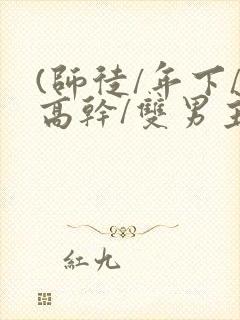 (師徒/年下/
高幹/雙男主
紅九